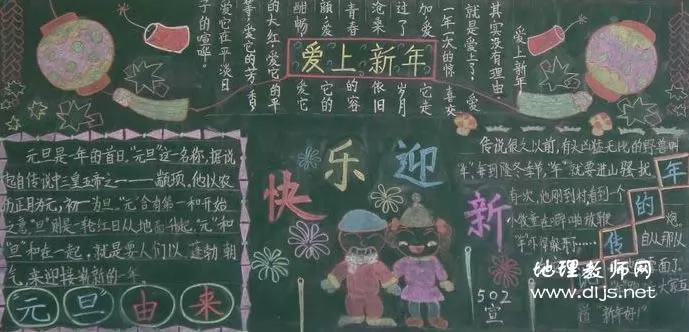 爱上新年
爱上新年
其实没有理由
就是爱上了,爱
一年一次的惊喜
加爱它走
过了岁月
沧桑依旧
青春的容
颜,爱它的
酣畅
的大红,爱它的平
等,爱它的芳香,
爱它在平淡日
子的喧哗。
元旦是一年的首日。“元旦”这一名称,据说
起自传说中三皇五帝之一——颛顼,他以农
历正月为元,初一为旦。“元”含有第一和开始
之意,“旦”则是一轮红日从地面升起。“元”和
“旦”和在一起,就是要人们以蓬勃朝
气,来迎接崭新的一年。
“元旦”由来
快乐迎新
传说很久以前,有头凶猛无比的野兽叫
“年”,每到隆冬季节,“年”就要进山骚扰,
有一次,他刚到村看到一个
小孩童在噼啪放鞭炮。
“年”吓得躲开……
自从那
“新年好!”
年的传说
502
宣
地理教师网
www.dljs.net